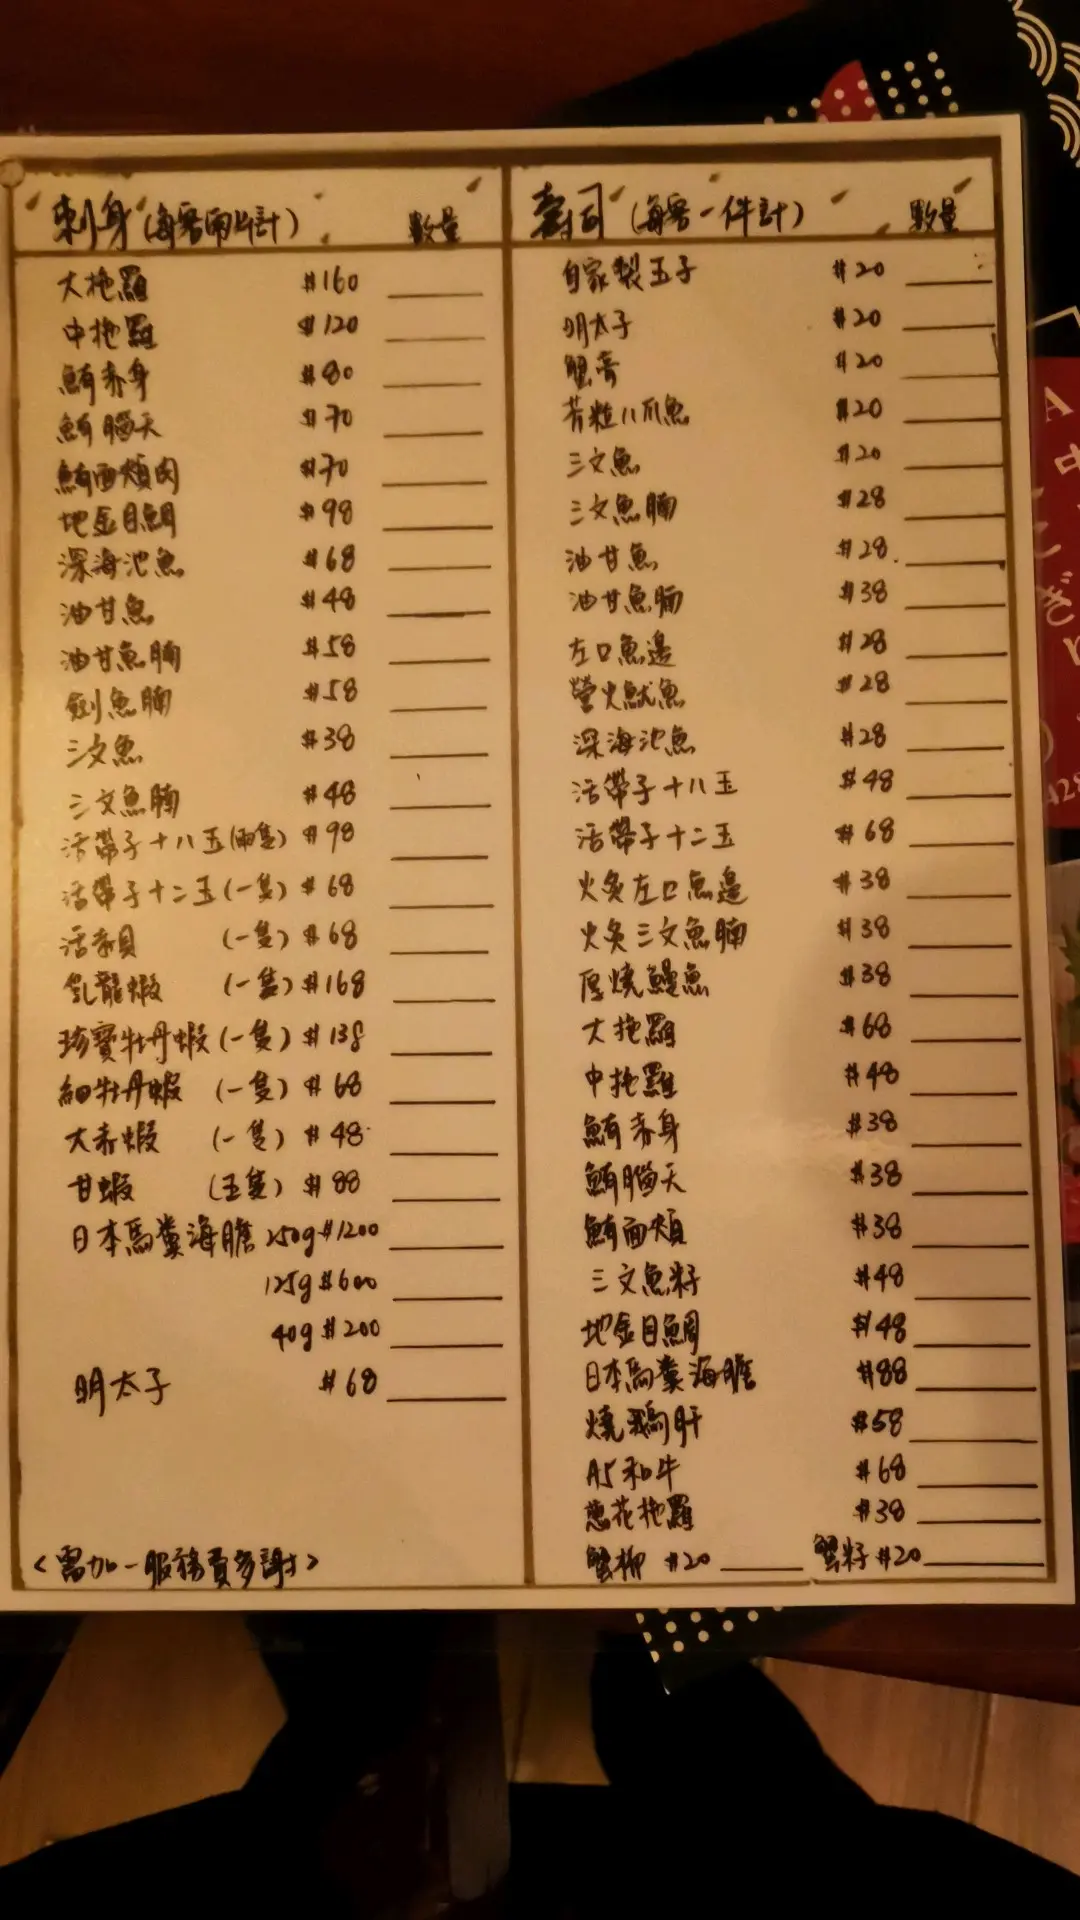 刺身(每客兩片計) 數量
大拖羅 $160
中拖羅 $120
鮪赤身 $80
鮪腦天 $70
鮪面頰肉 $70
地金目鯛 $98
深海池魚 $68
油甘魚 $48
油甘魚腩 $58
劍魚腩 $58
三文魚 $38
三文魚腩 $48
活帶子十八玉(兩隻) $98
活帶子十二玉(一隻) $68
活赤貝 (一隻) $68
龍蝦 (一隻) $168
珍寶牡丹蝦 (一隻) $138
細牡丹蝦 (一隻) $68
大赤蝦 (一隻) $48
甘蝦 (五隻) $88
日本馬糞海膽 250g $1200
125g $600
40g $200
明太子 $68
<需加一服務費多謝>
壽司 (每客一件計) 數量
自家製玉子 $20
明太子 $20
蟹膏 $20
芥粒八爪魚 $20
三文魚 $20
三文魚腩 $28
油甘魚 $28
油甘魚腩 $38
左口魚邊 $28
螢火魷魚 $28
深海池魚 $28
活帶子十八玉 $48
活帶子十二玉 $68
火炙左口魚邊 $38
火炙三文魚腩 $38
厚燒鰻魚 $38
大拖羅 $68
中拖羅 $48
鮪赤身 $38
鮪腦天 $38
鮪面頰 $38
三文魚籽 $48
地金目鯛 $48
日本馬糞海膽 $88
燒鵝肝 $58
A5和牛 $68
蔥花拖羅 $38
蟹柳 $20 蟹籽 $20
A